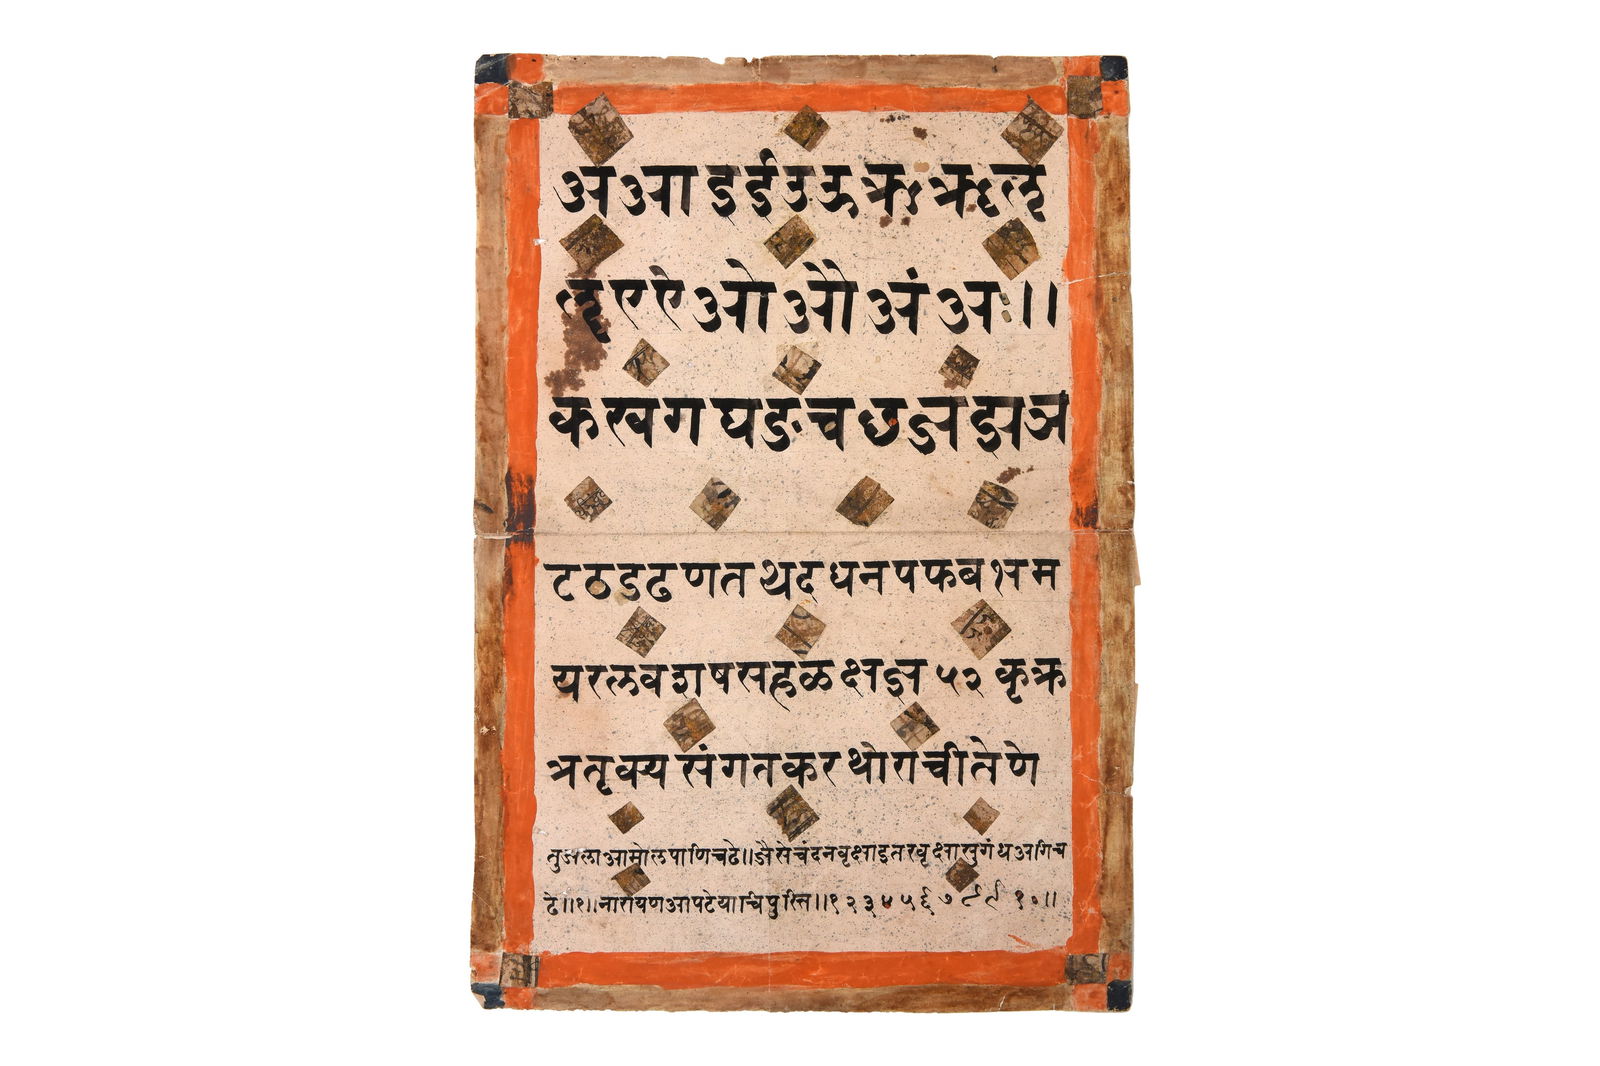 अ आ इ ई उ ऊ ऋ ॠ ऌ
ॡ ए ऐ ओ औ अं अः ।।
क ख ग घ ङ च छ ज झ ञ
ट ठ ड ढ ण त थ द ध न प फ ब भ म
य र ल व श ष स ह ळ क्ष ज्ञ ५२ कृ क्र
त्र तृ क्य संगतकरथोराचीतेणे
तुजलाआमोलपाणिचढे।।जैसेचंदनवृक्षाइतरवृक्षासुगंधअगिच
ढे।।१।।नारायणआपटेयाचि ।।१ २ ३ ४ ५ ६ ७ ८ ९ १०।।